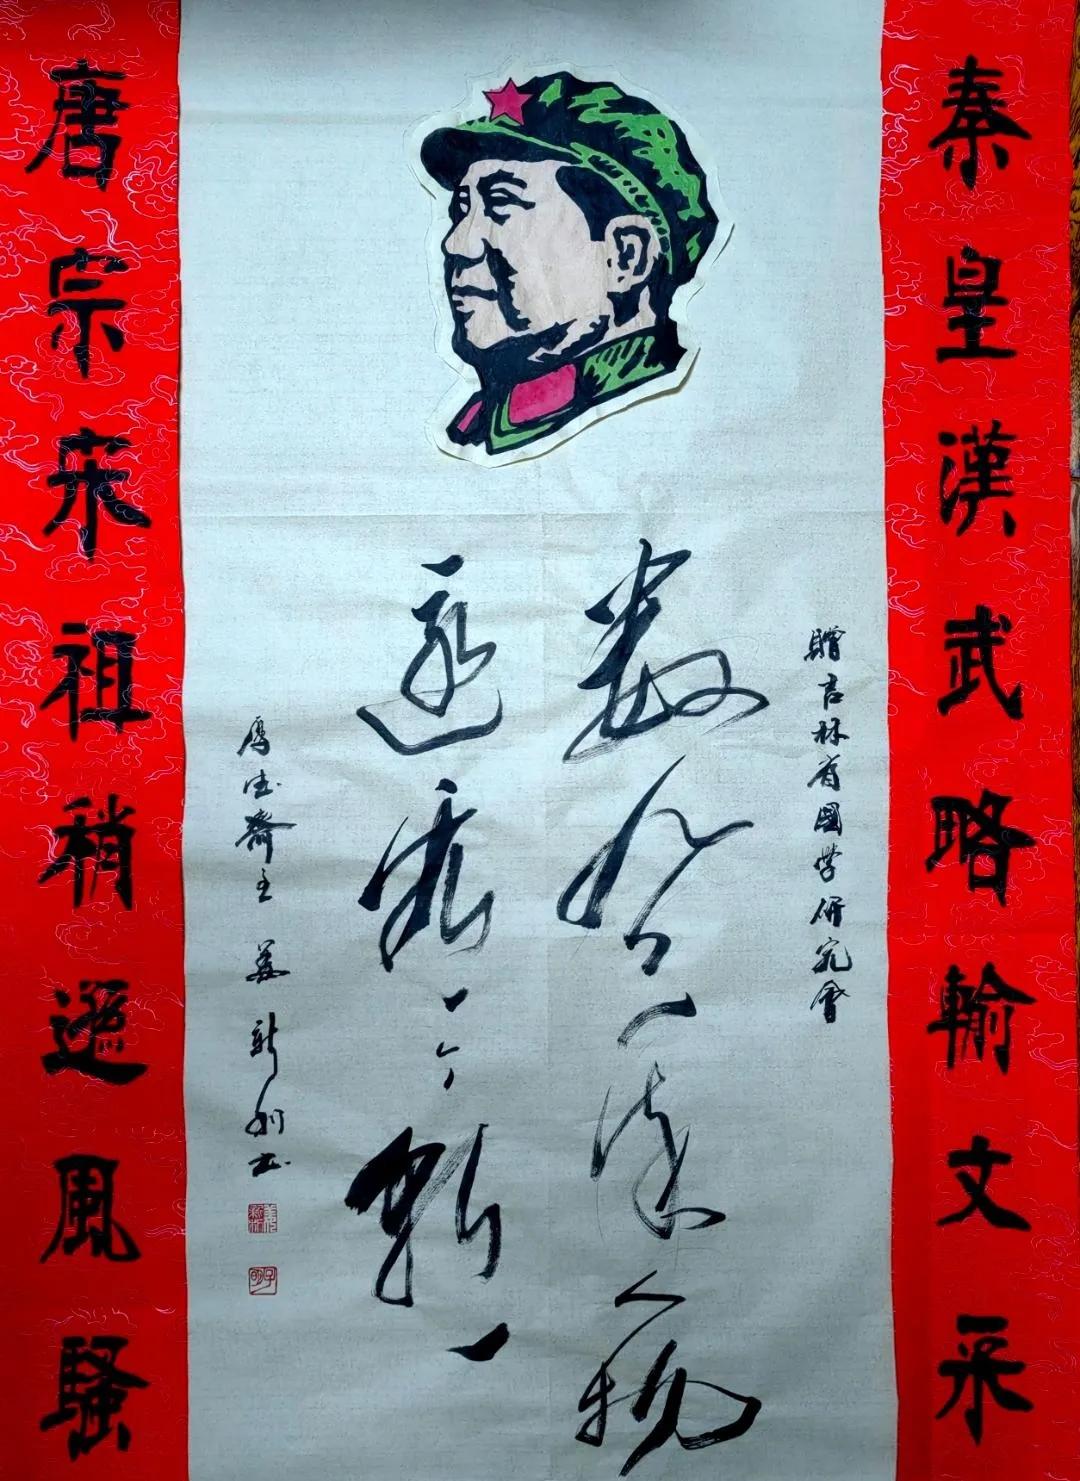 秦皇漢武略輸文采
贈吉林省國學研究會
數風流人物
還看今朝
厚德齋主 姜新
唐宗宋祖稍遜風騷